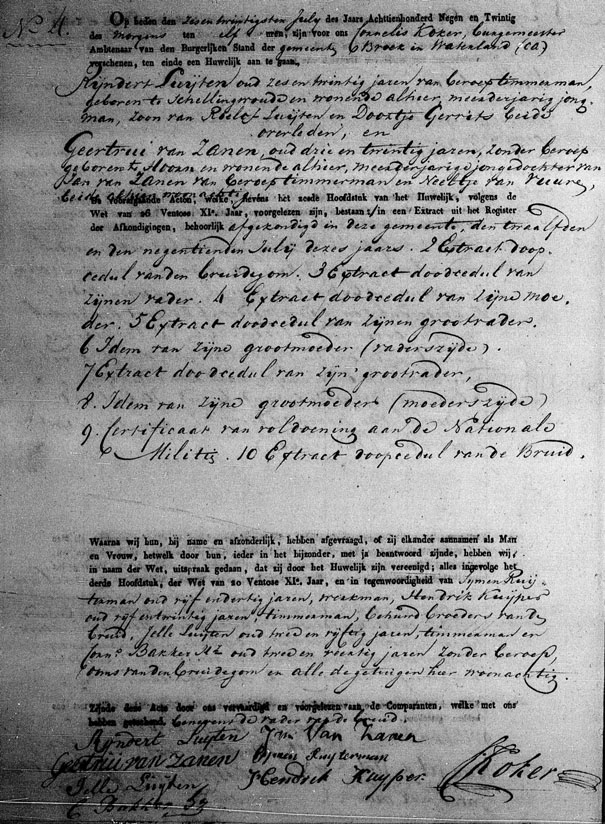 No 4.
Op heden den zes en twintigsten July des Jaars Achttienhonderd Negen en Twintig
des morgens ten elf uren zijn voor ons Cornelis Koker, Burgemeester
Ambtenaar van den Burgerlijken Stand der gemeente Broek in Waterland (ca)
verschenen, ten einde een Huwelijk aan te gaan,
Rijndert Luijten oud zes en twintig jaren van beroep timmerman,
geboren te Schellingwoude en wonende alhier, meerderjarig jong-
man, zoon van Roelof Luijten en Doortje Gerrits beide
overleden, en
Geertrui van Zanen, oud drie en twintig jaren, zonder beroep
geboren te Hoorn en wonende alhier, meerderjarige jongedochter van
Jan van Zanen van beroep timmerman en Neeltje van Vuure,
beide alhier woonachtig.
en voorafgaande Acten, welke, nevens het zesde Hoofdstuk van het Huwelijk, volgens de
Wet van 26 Ventose XIe. Jaar, voorgelezen zijn, bestaan: 1/in een Extract uit het Register
der Afkondigingen, behoorlijk afgekondigd in deze gemeente, den twaalfden
en den negentienden July dezes jaars. 2 Extract doop-
cedul van den Bruidegom. 3 Extract doodcedul van
zijnen vader. 4 Extract doodcedul van zijne moe-
der. 5 Extract doodcedul van zijnen grootvader.
6 Idem van zijne grootmoeder (vaderszijde).
7 Extract doodcedul van zijn' grootvader,
8. Idem van zijne grootmoeder (moederszijde)
9. Certificaat van voldoening aan de Nationale
Militie. 10 Extract doopcedul van de Bruid.
Waarna wij hun, bij name en afzonderlijk, hebben afgevraagd, of zij elkander aannamen als Man
en Vrouw, hetwelk door hun, ieder in het bijzonder, met ja beantwoord zijnde, hebben wij,
in naam der Wet, uitspraak gedaan, dat zij door het Huwelijk zijn vereenigd; alles ingevolge het
derde Hoofdstuk, der Wet van 20 Ventose XIe. Jaar, en in tegenwoordigheid van Symen Ruij-
terman oud vijf en dertig jaren, werkman, Hendrik Kuijper
oud vijf en twintig jaren, timmerman, behuwd broeders van de
bruid, Jelle Luijten oud twee en vijftig jaren, timmerman en
Bakker oud twee en veertig jaren zonder beroep,
ooms van den bruidegom en alle de getuigen hier woonachtig.
Zijnde deze Acte door ons vervaardigd en voorgelezen aan de Comparanten, welke met ons
hebben geteekend, benevens de vader van de bruid.
Rijndert Luijten Jan Van Zanen
Geertrui van Zanen Symen Ruyterman
Jelle Luijten Hendrik Kuyper. CKoker
Bakker